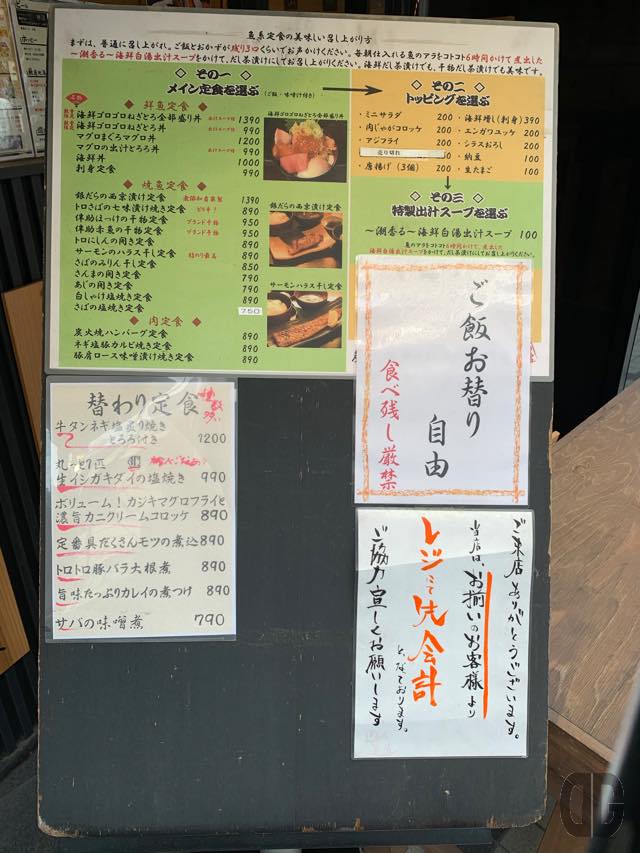 魚系定食の美味しい召し上がり方
まずは、普通に召し上がれ。ご飯とおかずが残り3口くらいでお声かけください。毎朝仕入れる魚のアラをコトコト6時間かけて煮出した
～潮香る～海鮮白湯出汁スープをかけて、だし茶漬けにしてお召し上がりください。海鮮だし茶漬けでも、干物だし茶漬けでも美味です。
◇ その一 ◇
メイン定食を選ぶ (ご飯・味噌汁付き)
◆ 鮮魚定食 ◆
海鮮ゴロゴロねぎとろ全部盛り丼 出汁スープ付 1390
海鮮ゴロゴロねぎとろ丼 出汁スープ付 990
マグロまぐろマグロ丼 1200
マグロの出汁とろろ丼 出汁スープ付 990
海鮮丼 1000
刺身定食 990
◆ 焼魚定食 ◆
銀だらの西京漬け定食 1390
トロさばの七味漬け焼き定食 ピリ辛! 890
伴助ほっけの干物定食 ブランド干物 950
伴助赤魚の干物定食 ブランド干物 950
トロにしんの開き定食 890
サーモンのハラス干し定食 脂のり最高 890
さばのみりん干し定食 850
さんまの開き定食 790
あじの開き定食 790
白しゃけ塩焼き定食 890
さばの塩焼き定食 750
◆ 肉定食 ◆
炭火焼ハンバーグ定食 890
ネギ塩豚カルビ焼き定食 890
豚肩ロース味噌漬け焼き定食 890
海鮮ゴロゴロねぎとろ全部盛り丼
銀だらの西京漬け定食
サーモンハラス干し定食
◇ その二 ◇
トッピングを選ぶ
・ミニサラダ 200
・肉じゃがコロッケ 200
・アジフライ 200
売り切れ
・唐揚げ（3個） 200
・海鮮増し(刺身) 390
・エンガワユッケ 200
・シラスおろし 200
・納豆 100
・生たまご 100
◇ その三 ◇
特製出汁スープを選ぶ
～潮香る～海鮮白湯出汁スープ 100
魚のアラをコトコト6時間かけて、煮出した
海鮮白湯出汁スープをかけて、だし茶漬けにしてお召し上がりください。
ご飯お替り
自由
食べ残し厳禁
替わり定食
牛タンネギ塩炙り焼き
とろろ付き 1200
丸ごと1匹
生イシガキダイの塩焼き 990
ボリューム！カジキマグロフライと
濃旨カニクリームコロッケ 890
定番具だくさんモツの煮込 890
トロトロ豚バラ大根煮 890
旨味たっぷりカレイの煮つけ 890
サバの味噌煮 790
ご来店ありがとうございます。
当店は、お揃いのお客様より
レジにて先会計
となっております。
ご協力宜しくお願いします。